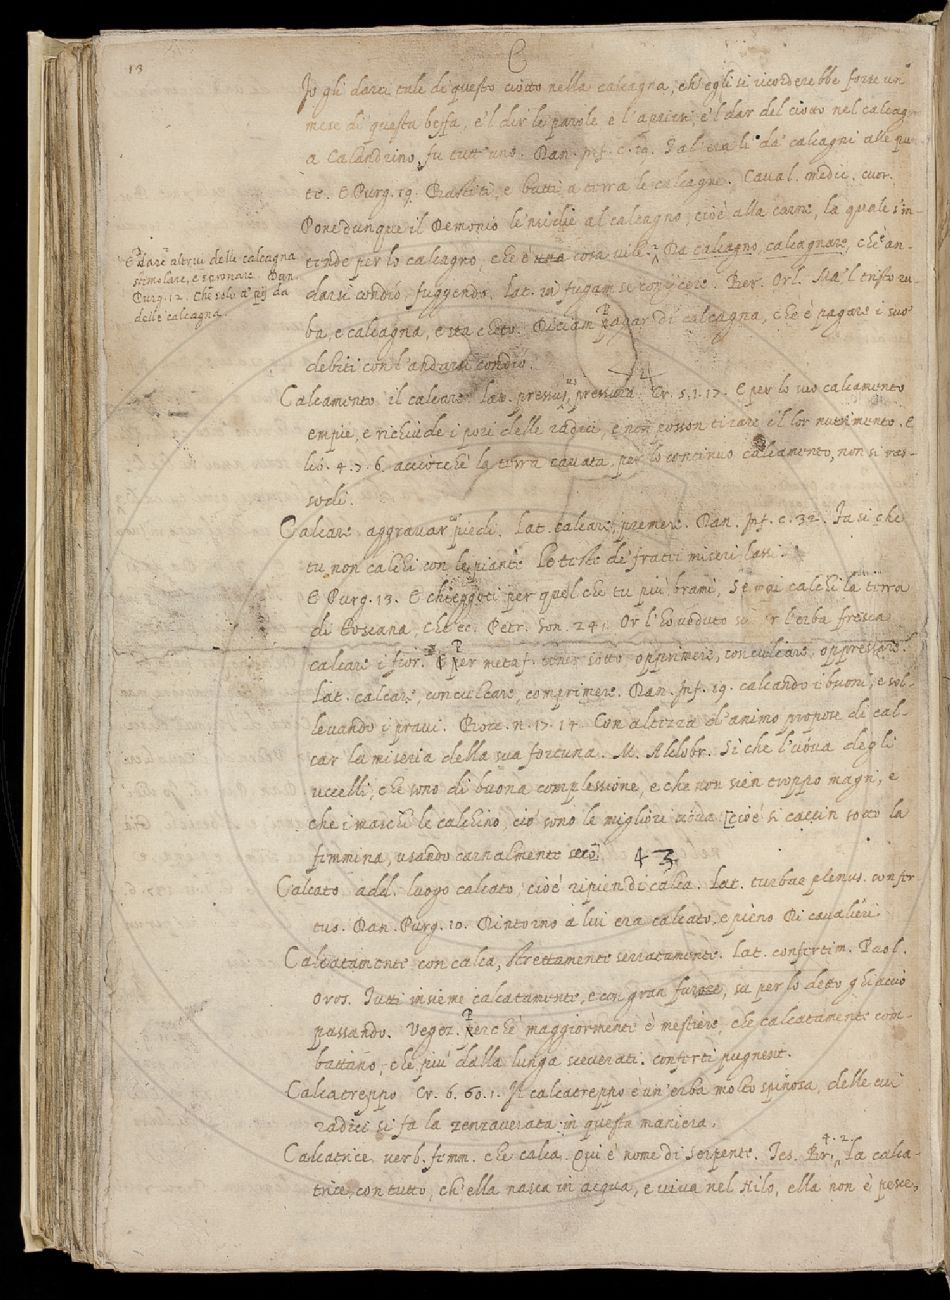 13
C
Io gli darei tale di questo ciotto nella calcagna, ch'egli si ricorderebbe forse un
mese di questa beffa, e'l dir le parole e l'aprirsi, e'l dar del ciotto nel calcagno
a Calandrino, fu tutt'uno. Dan. Inf. c. 19. Tal era lì da' calcagni alle pun-
te. E Purg. 19. Bastiti, e batti a terra le calcagne. Caval. medic. cuor.
Pone dunque il Demonio le insidie al calcagno, cioè alla carne, la quale s'in-
tende per lo calcagno, che è cosa vile. Da calcagno, calcagnare, che è an-
darsi con dio, fuggendo. Lat. in fugam se conijcere. Ber. Orl. Ma'l tristo ru-
ba, e calcagna, e sta cheto. Diciam Pagar di calcagna, che è pagare i suoi
debiti con l'andarsi con dio.
E Dare altrui delle calcagna
stimolare, e spronare. Dan.
Purg. 12. Che solo a' pij da
delle calcagna.
Calcamento il calcare. Lat. pressus, pressura. Cr. 5.1.17. E per lo suo calcamento
empie, e richiude i pori delle radici, e non posson tirare il lor nutrimento. E
lib. 4.7.6. acciocchè la terra cavata, per lo continuo calcamento, non si ras-
sodi.
Calcare aggravar co' piedi. Lat. calcare, premere. Dan. Inf. c. 32. Fa sì che
tu non calchi con le piante Le teste de' fratei miseri lassi.
E Purg. 13. E chieggoti per quel che tu più brami, Se mai calchi la terra
di Toscana, che ec. Petr. Son. 241. Or l'ho veduto su per l'erba fresca
calcare i fior. E Per metaf. tener sotto, opprimere, conculcare, oppressare.
Lat. calcare, conculcare, comprimere. Dan. Inf. 19. calcando i buoni, e sol-
levando i pravi. Bocc. n. 17. 17. Con altezza d'animo propose di cal-
car la miseria della sua fortuna. M. Aldobr. Sì che l'uova degli
uccelli, che sono di buona complessione, e che non sien troppo magri, e
che i maschi le calchino, ciò sono le migliori uova [cioè si cacciin sotto la
fimmina, usando carnalmente seco]
43
Calcato add. luogo calcato, cioè ripien di calca. Lat. turbae plenus. confer-
tus. Dan. Purg. 10. Dintorno a lui era calcato, e pieno Di cavalieri
Calcatamente con calca, strettamente serratamente. Lat. confertim. Paol.
Oros. Tutti insieme calcatamente, e con gran furore, su per lo detto ghiaccio
passando. Vegez. Perchè maggiormente è mestiere, che calcatamente com-
battano, che più dalla lunga sceverati. conferti pugnent.
Calcatreppo Cr. 6. 60. 1. Il calcatreppo è un'erba molto spinosa, delle cui
radici si fa la zenzaverata in questa maniera.
Calcatrice verb. femm. che calca. Qui è nome di serpente. Tes. Br. 4. 2. La calca-
trice, con tutto, ch'ella nasca in acqua, e viva nel Nilo, ella non è pesce,